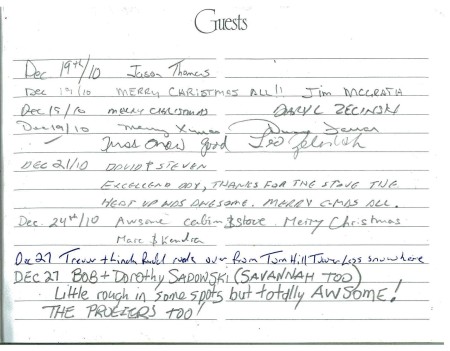 Guests
Dec 19th/10 Jason Thomas
Dec 19/10 MERRY CHRISTMAS ALL!! Jim McGRATH
Dec 19/10 MERRY CHRISTMAS DARYL ZECINSKI
Dec 19/10 Merry Xmas
good
DEC 21/10 DAVID & STEVEN
EXCELLENT DAY, THANKS FOR THE STOVE THE
HEAT UP WAS AWESOME. MERRY C-MAS ALL.
Dec. 24th/10 Awsome cabin & stove. Merry Christmas
Marc & Kendra
Dec 27 Trevor & rode over from Turn Hill Tower Less snow here
DEC 27 BOB + Dorothy SADOWSKI (SAVANNAH TOO)
Little rough in some spots but totally AWSOME!
THE TOO!